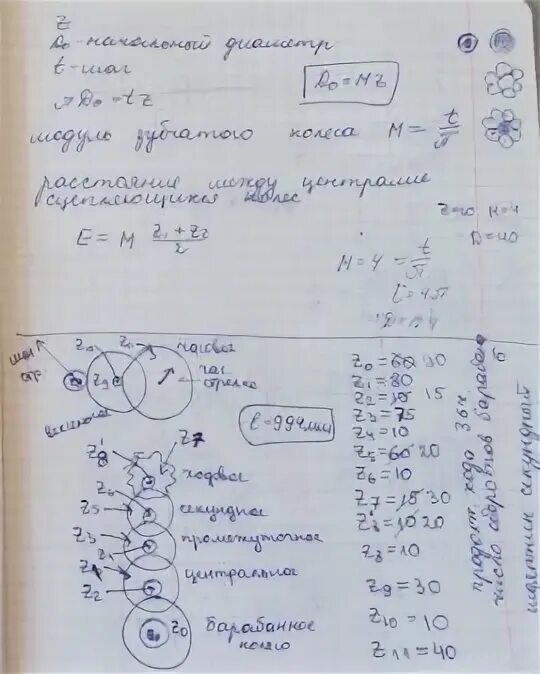 z
D₀ - начальный диаметр
t - шаг
πD₀ = tz
D₀ = Mz
модуль зубчатого колеса M = t/π
расстояние между центрами
сцепляющихся колес
E = M (z₁ + z₂)/2
z=10 M=4
D=40
M = 4 = t/π
t = 4π
часовое
час
стрелка
z₉
l = 994мм
z₈'
z₇
ходовое
z₆
z₅
секундное
z₃
промежуточное
центральное
z₂
z₀
барабанное
колесо
z₀ = 90
z₁ = 80
z₂ = 15 15
z₃ = 75
z₄ = 10
z₅ = 60 20
z₆ = 10
z₇ = 15 30
z₈' = 10 20
z₈ = 10
z₉ = 30
z₁₀ = 10
z₁₁ = 40
продолж. хода 36ч
число оборотов барабана 6
маятник секундный